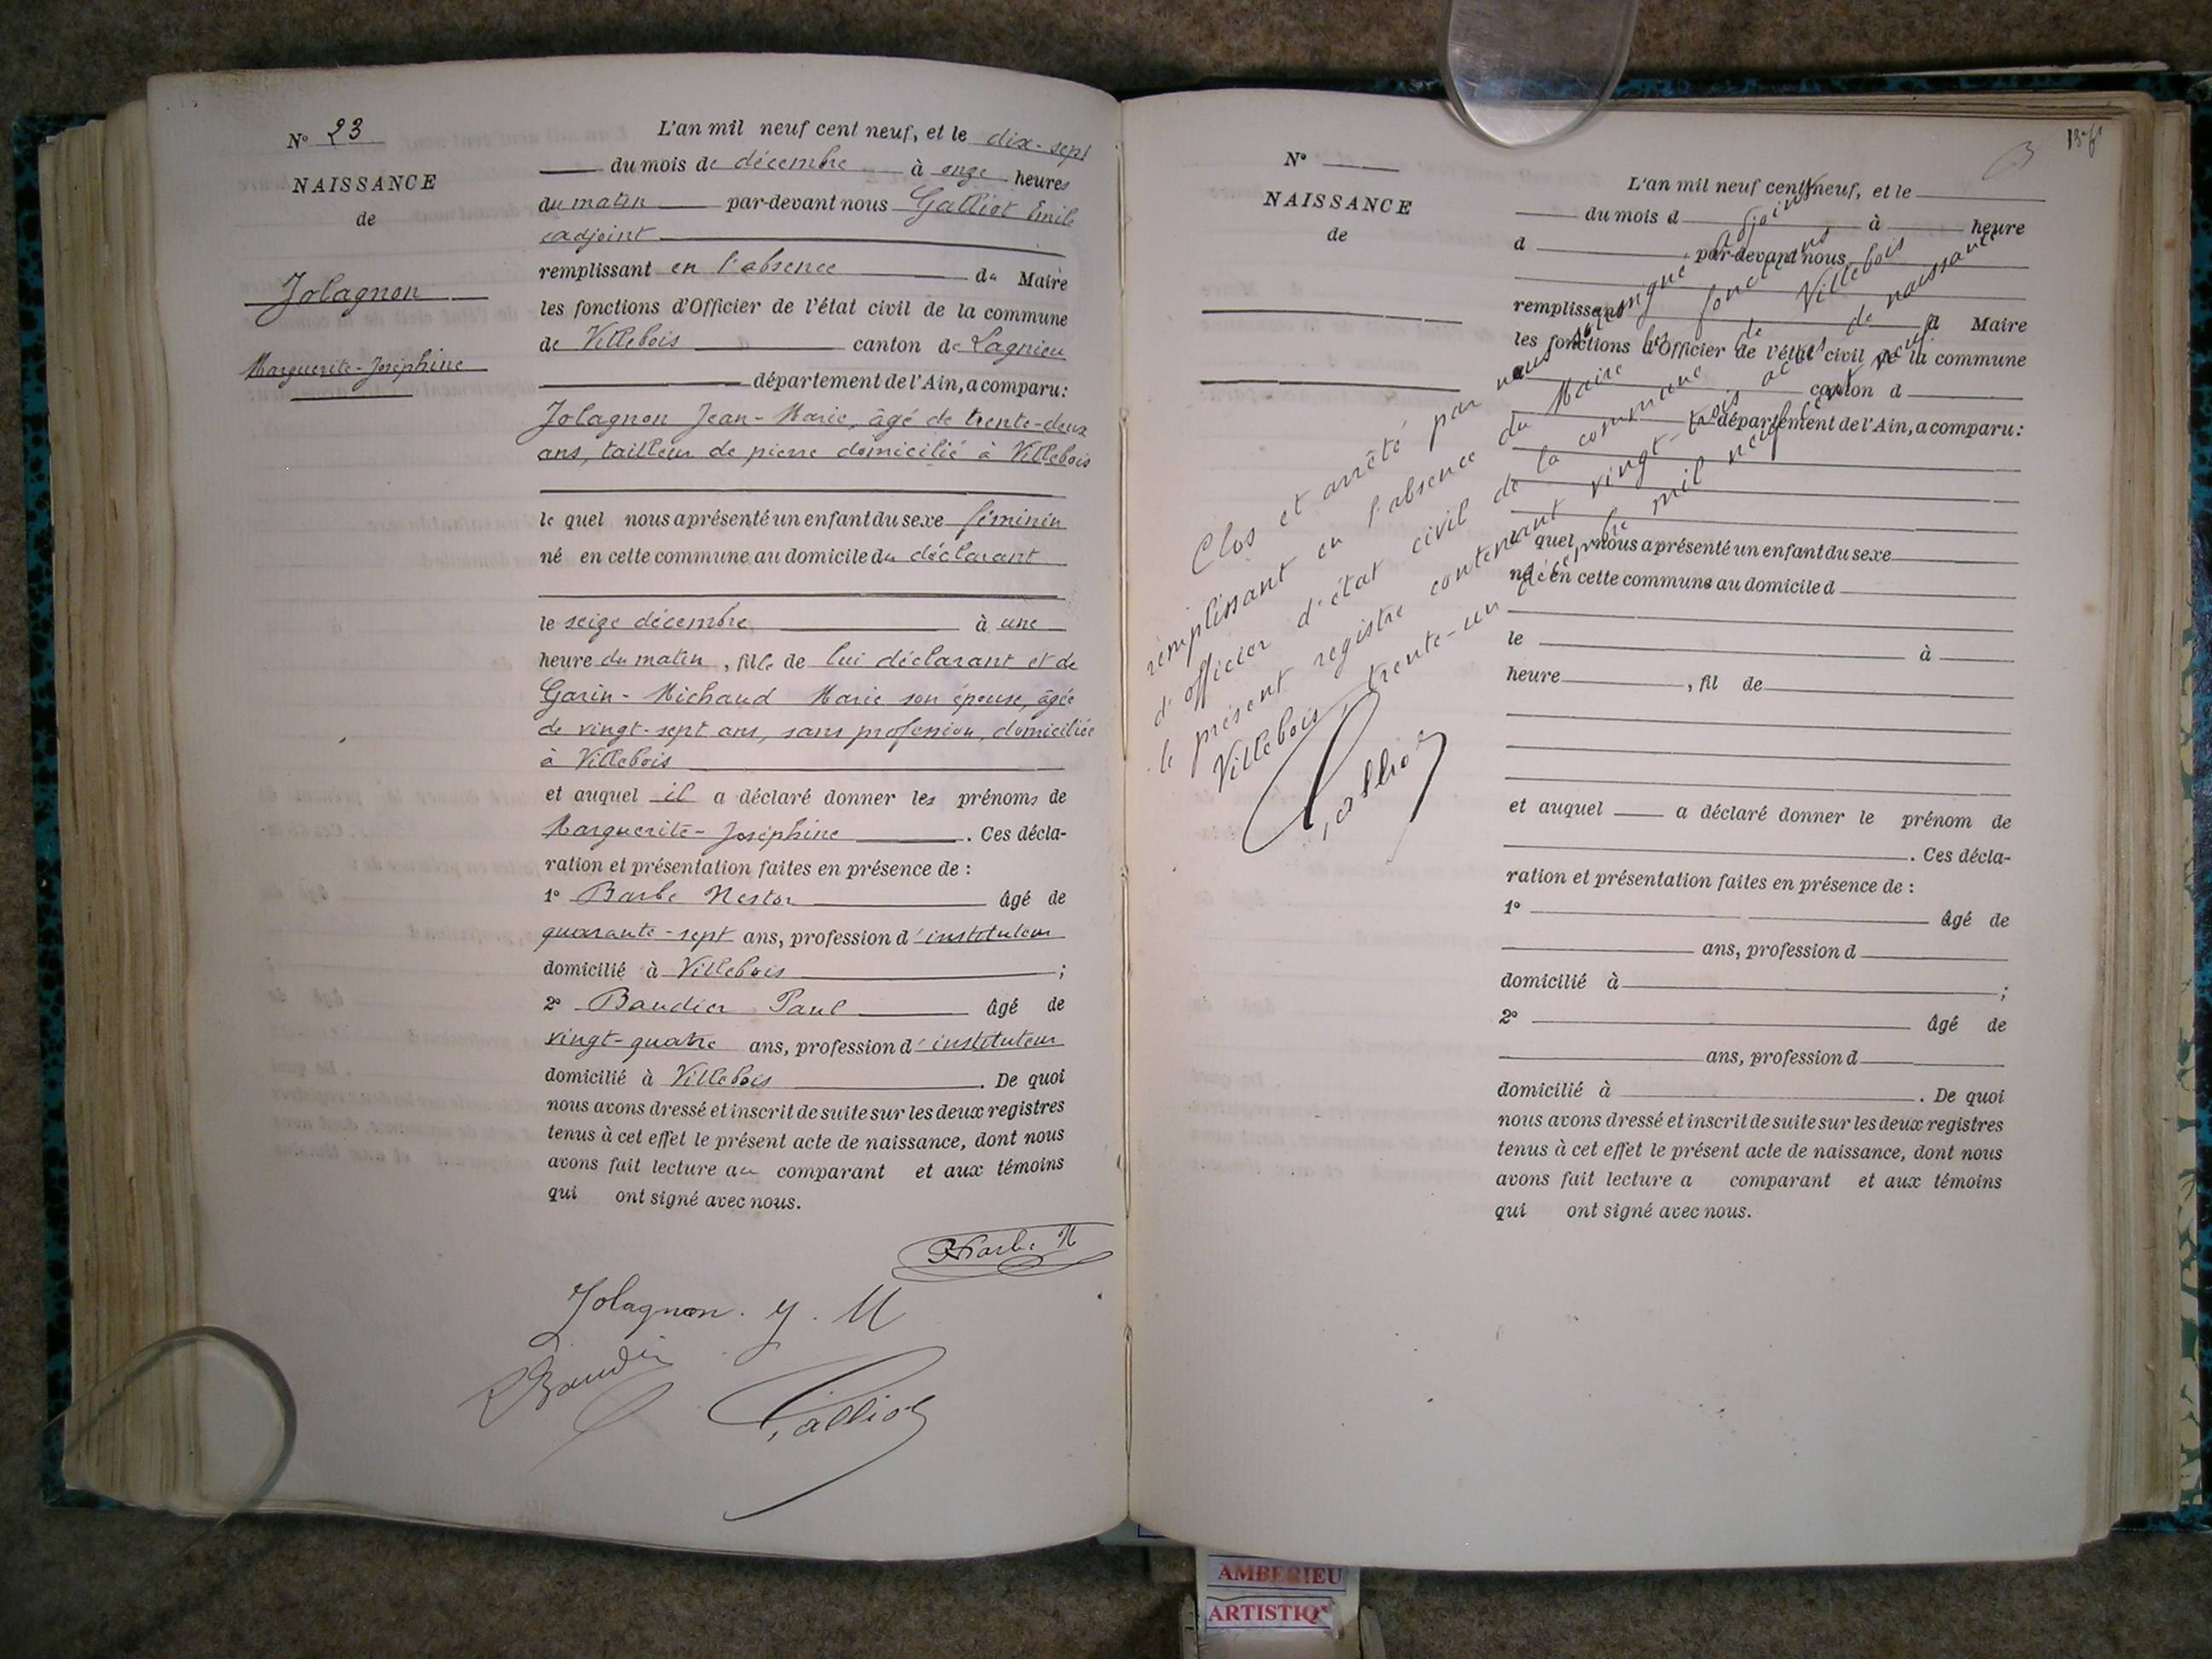 N° 23
NAISSANCE
de
Jolagnon
Marguerite-Joséphine
L'an mil neuf cent neuf, et le dix-sept
du mois de décembre à onze heures
du matin par-devant nous Galliot Emile
adjoint
remplissant en l'absence du Maire
les fonctions d'Officier de l'état civil de la commune
de Villebois canton de Lagnieu
département de l'Ain, a comparu:
Jolagnon Jean-Marie, âgé de trente-deux
ans, tailleur de pierre domicilié à Villebois
le quel nous a présenté un enfant du sexe féminin
né en cette commune au domicile du déclarant
le seize décembre à une
heure du matin, fille de lui déclarant et de
Garin-Michaud Marie son épouse, âgée
de vingt-sept ans, sans profession, domiciliée
à Villebois
et auquel il a déclaré donner les prénoms de
Marguerite-Joséphine. Ces décla-
ration et présentation faites en présence de :
1° Barbe Nestor âgé de
quarante-sept ans, profession d'instituteur
domicilié à Villebois ;
2° Baudier Paul âgé de
vingt-quatre ans, profession d'instituteur
domicilié à Villebois. De quoi
nous avons dressé et inscrit de suite sur les deux registres
tenus à cet effet le présent acte de naissance, dont nous
avons fait lecture au comparant et aux témoins
qui ont signé avec nous.
Barbe N
Jolagnon. J. M
Baudier
Galliot
N°
NAISSANCE
de
L'an mil neuf cent neuf, et le
du mois d à heure
d par-devant nous
remplissant d Maire
les fonctions d'Officier de l'état civil de la commune
d canton d
département de l'Ain, a comparu:
quel nous a présenté un enfant du sexe
né en cette commune au domicile d
le à
heure , fil de
et auquel a déclaré donner le prénom de
. Ces décla-
ration et présentation faites en présence de :
1° âgé de
ans, profession d
domicilié à ;
2° âgé de
ans, profession d
domicilié à . De quoi
nous avons dressé et inscrit de suite sur les deux registres
tenus à cet effet le présent acte de naissance, dont nous
avons fait lecture a comparant et aux témoins
qui ont signé avec nous.
Clos et arrêté par nous soussigné adjoint
remplissant en l'absence du Maire les fonctions
d'officier d'état civil de la commune de Villebois
le présent registre contenant vingt-trois actes de naissance
Villebois, trente-un décembre mil neuf cent neuf
Galliot
AMBERIEU
ARTISTIQ